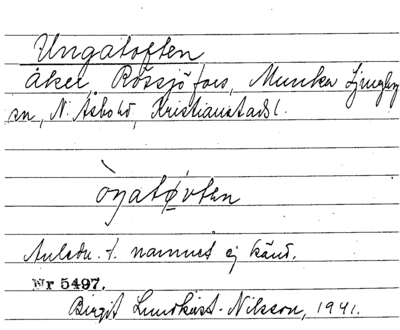 Ungatoften
åker, Rössjöfors, Munka Ljungby
sn, N. Åsbohd, Kristianstads l.
òŋatøvten
Anledn. t. namnet ej känd.
Nr 5497.
Birgit Lundkvist-Nilsson, 1941.